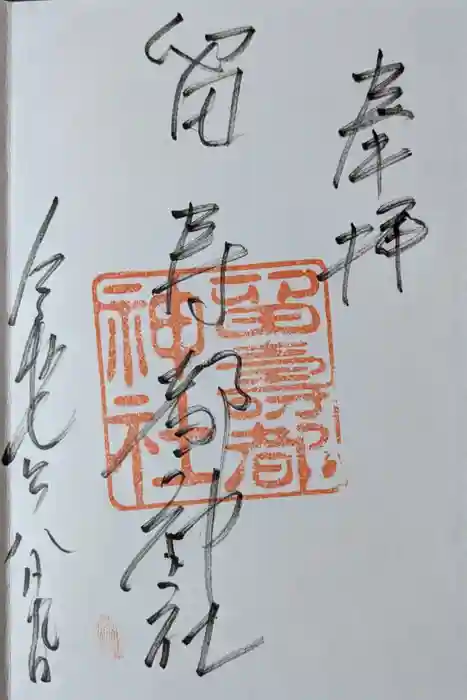 奉拝
留寿都神社
留壽都
神社
令和六年八月九日